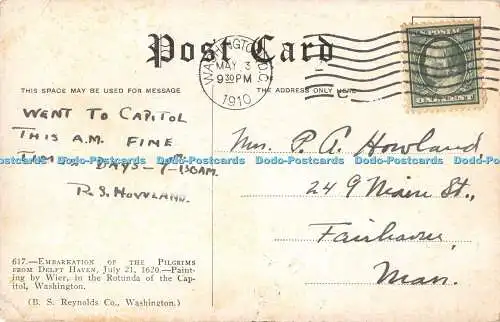 Post Card
WASHINGTON, D.C.
MAY 3
9 30 PM
1910
U.S. POSTAGE
ONE CENT
THIS SPACE MAY BE USED FOR MESSAGE
THE ADDRESS ONLY HERE
WENT TO CAPITOL
THIS A.M. FINE
DAYS
R. S. HOWLAND.
Mrs. P. A. Howland
Dodo-Postcards Dodo-Postcards Dodo-Postcards Dodo-Postcards Dodo-Postcards
24 9 Main St.,
Fairhaven,
Mass.
617.—EMBARKATION OF THE PILGRIMS
FROM DELFT HAVEN, JULY 21, 1620.—Paint-
ing by Wier, in the Rotunda of the Cap-
itol, Washington.
(B. S. Reynolds Co., Washington.)